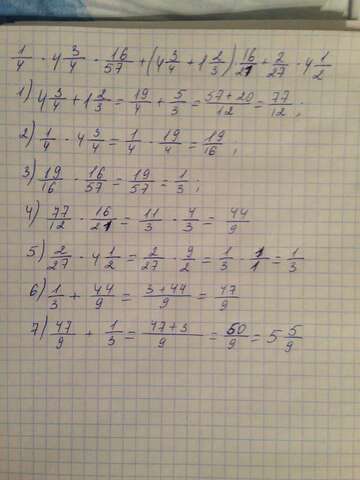 1/4 · 4 3/4 · 16/57 + (4 3/4 + 1 2/3) · 16/21 + 2/27 · 4 1/2
1) 4 3/4 + 1 2/3 = 19/4 + 5/3 = 57+20/12 = 77/12 ;
2) 1/4 · 4 3/4 = 1/4 · 19/4 = 19/16 ;
3) 19/16 · 16/57 = 19/57 = 1/3 ;
4) 77/12 · 16/21 = 11/3 · 4/3 = 44/9
5) 2/27 · 4 1/2 = 2/27 · 9/2 = 1/3 · 1/1 = 1/3
6) 1/3 + 44/9 = 3+44/9 = 47/9
7) 47/9 + 1/3 = 47+3/9 = 50/9 = 5 5/9